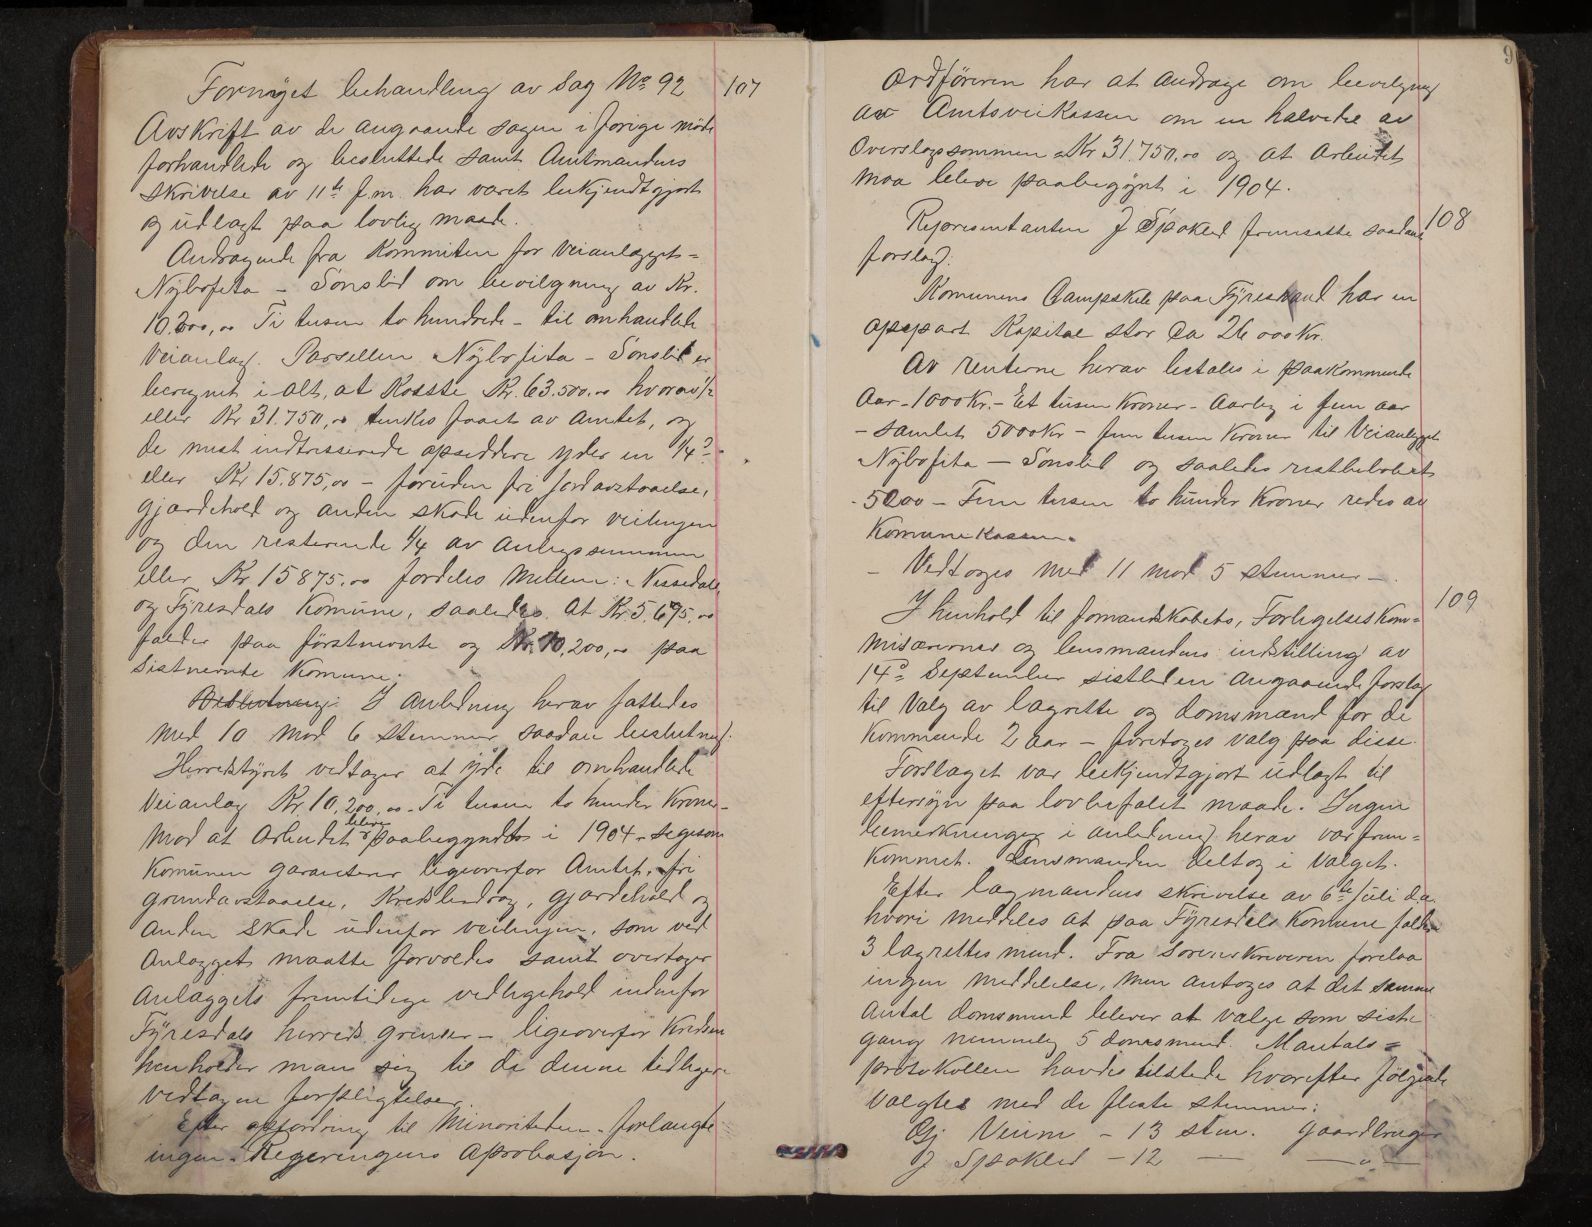 Fornyet behandling av Sag No 92 107
Avskrift av de angaaende sagen i forige möde
forhandlede og besluttede samt Amtmandens
skrivelse av 11te f.m. har været bekjendtgjort
og udlagt paa lovlig maade.
Andragende fra Kommiten for veianlægget =
Nybofita – Sønslid om bevilgning av Kr.
10.200,00 Ti tusen to hundrede – til omhandlede
veianlæg. Parsellen Nybofita – Sønslid er
beregnet i alt, at Kosste Kr. 63.500,00 hvorav 1/2
eller Kr 31.750,00 tænkes faaet av amtet, og
de mest indtresserede opsiddere yder en 1/4
eller Kr 15.875,00 – foruden fri jordavstaaelse,
gjærdehold og anden skade udenfor veilinjen
og den resterende 1/4 av anlegssummen
eller Kr. 15875,00 fordeles mellem: Nissedals
og Fyresdals Komune, saaledes at Kr. 5.675,00
falder paa förstnevnte og Kr. 10,200,00 paa
sistnevnte Komune.
Beslutning: I anledning herav fattedes
med 10 mod 6 stemmer saadan beslutning:
Herredstyret vedtager at yde til omhandlede
veianlæg Kr. 10,200,00 – Ti tusen to hunder Kroner –
mod at arbeidet bliver paabegyndt i 1904 – ligesom
Komunen garanterer ligeoverfor Amtet, fri
grundavstaaelse, Kredsbidrag, gjærdehold og
anden skade udenfor veilinjen, som ved
anlægget maatte forvoldes samt overtager
anlæggets fremtidige vedligehold indenfor
Fyresdals herreds grenser – ligeoverfor Kredsen
henholder man sig til de denne tidligere
vedtagne forpligtelser.
Efter opfordring til Minoriteten forlangte
ingen Regjeringens aprobasjon.
9
Ordföreren har at andrage om bevilgning
av Amtsveikassen om en halvdel av
Overslagssommen – Kr 31.750,00 og at arbeidet
maa bleve paabegynt i 1904.
Representanten J Spokled fremsatte saadant 108
forslag:
Komunens Campskile paa Fyresvand har en
oppspart Kapital stor Ca 26 000 Kr.
Av renterne herav betales i paakommende
Aar – 1000 Kr. – Et tusen Kroner – aarlig i fem aar
– samlet 5000 Kr – fem tusen Kroner til Veianlægget
Nybofita – Sønslid og saaledes restbelöbet
– 5200 – Fem tusen to hunder Kroner redes av
Komunekassen.
– Vedtoges med 11 mod 5 stemmer –
I henhold til formandskabets, Forligelseskom= 109
misærernes og lensmandens indstilling av
14de September sistleden angaaende forslag
til Valg av lagrette og domsmænd for de
Kommende 2 aar – foretoges valg paa disse.
Forslaget var bekjendtgjort udlagt til
eftersyn paa lovbefalet maade. Ingen
bemerkninger i anledning herav var frem=
kommet. Lensmanden deltog i valget.
Efter lagmandens skrivelse av 6te juli d.a.
hvori meddeles at paa Fyresdals Komune falder
3 lagrettes mend. Fra Sorenskriveren forelaa
ingen meddelelse, men antoges at det samme
Antal domsmend blever at vælge som siste
gang nemmelig 5 domsmend. Mantals=
protokollen havdes tilstede hvorefter fölgende
Valgtes med de fleste stemmer:
Gj Veum – 13 stem. Gaardbruger
J Spokled – 12 — — " —